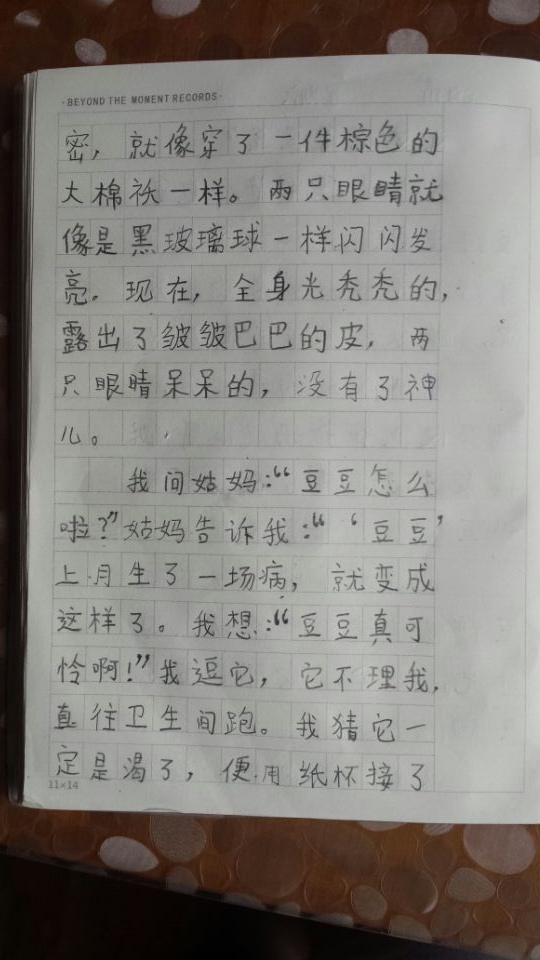 ·BEYOND THE MOMENT RECORDS·
密，就像穿了一件棕色的
大棉袄一样。两只眼睛就
像是黑玻璃球一样闪闪发
亮。现在，全身光秃秃的，
露出了皱皱巴巴的皮，两
只眼睛呆呆的，没有了神
儿。
我间姑妈：“豆豆怎么
啦？”姑妈告诉我：“‘豆豆’
上月生了一场病，就变成
这样了。我想：“豆豆真可
怜啊！”我逗它，它不理我，
直往卫生间跑。我猜它一
定是渴了，便用纸杯接了
11×14